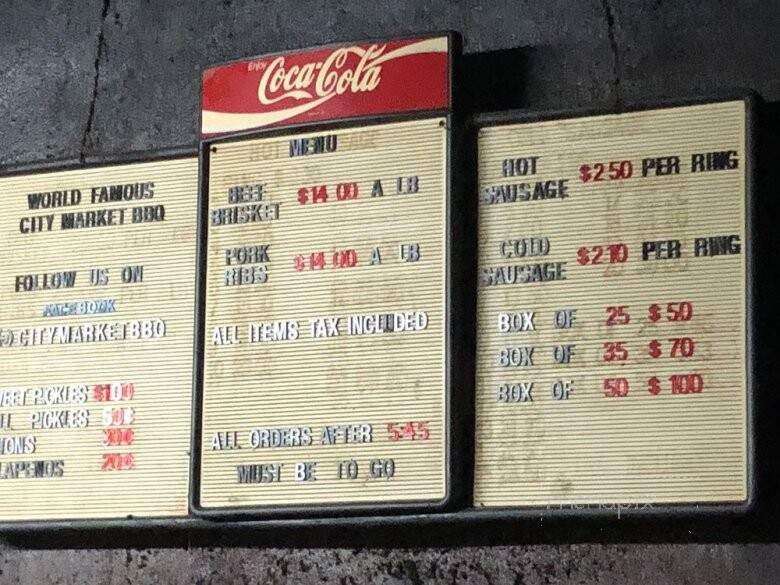 WORLD FAMOUS
CITY MARKET BBQ
FOLLOW US ON
FACEBOOK
@CITYMARKETBBQ
WEET PICKLES $1.00
LL PICKLES 50¢
IONS 30¢
LAPENOS 20¢
Enjoy
Coca-Cola
HOT MENU
BEEF BRISKET $14 00 A LB
PORK RIBS $14 00 A LB
ALL ITEMS TAX INCLUDED
ALL ORDERS AFTER 5:45
MUST BE TO GO
HOT SAUSAGE $2 50 PER RING
COLD SAUSAGE $2 10 PER RING
BOX OF 25 $50
BOX OF 35 $70
BOX OF 50 $100
menupix